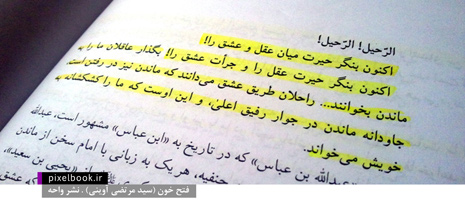 الرّحیل! الرّحیل!
اکنون بنگر حیرت میان عقل و عشق را!
اکنون بنگر حیرت عقل را و جرأت عشق را! بگذار عاقلان ما را به
ماندن بخوانند... راحلان طریق عشق می‌دانند که ماندن نیز در رفتن است.
جاودانه ماندن در جوار رفیق اعلیٰ، و این اوست که ما را کشکشانه به
خویش می‌خواند.
عبدالله بن عباس» که در تاریخ به «ابن عباس» مشهور است، عبدالله
حنفیه، هر یک به زبانی با امام سخن از ماندن
«یحیی بن سعید»،
pixelbook.ir
فتح خون (سید مرتضی آوینی) . نشر واحه